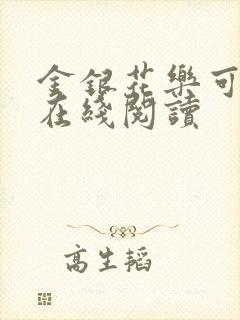 金銀花樂可
在綫閱讀
高生韜